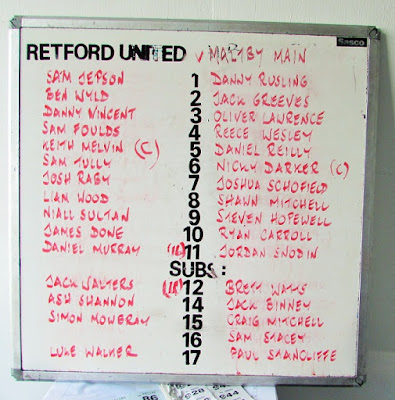 Sasco
RETFORD UNITED v MALTBY MAIN
SAM JEPSON 1 DANNY RUSLING
BEN WYLD 2 JACK GREEVES
DANNY VINCENT 3 OLIVER LAURENCE
SAM FOULDS 4 REECE WESLEY
KEITH MELVIN (C) 5 DANIEL REILLY
SAM TULLY 6 NICKY DARKER (C)
JOSH RABY 7 JOSHUA SCHOFIELD
LIAM WOOD 8 SHAWN MITCHELL
NIALL SULTAN 9 STEVEN HOPEWELL
JAMES DONE 10 RYAN CARROLL
DANIEL MURRAY 11 JORDAN SNODIN
SUBS:
JACK WALTERS 12 BRETT WATTS
ASH SHANNON 14 JACK BINNEY
SIMON MOWBRAY 15 CRAIG MITCHELL
16 SAM STACEY
LUKE WALKER 17 PAUL STANCLIFFE
86 28 $44